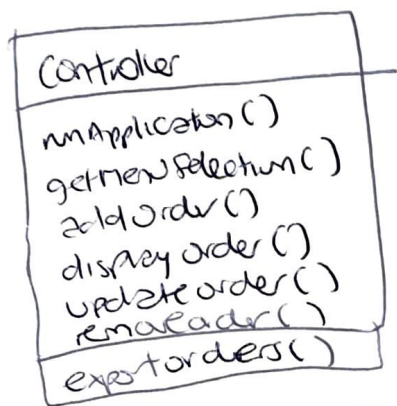 Controller
runApplication()
getMenuSelection()
addOrder()
displayOrder()
updateOrder()
removeOrder()
exportOrders()